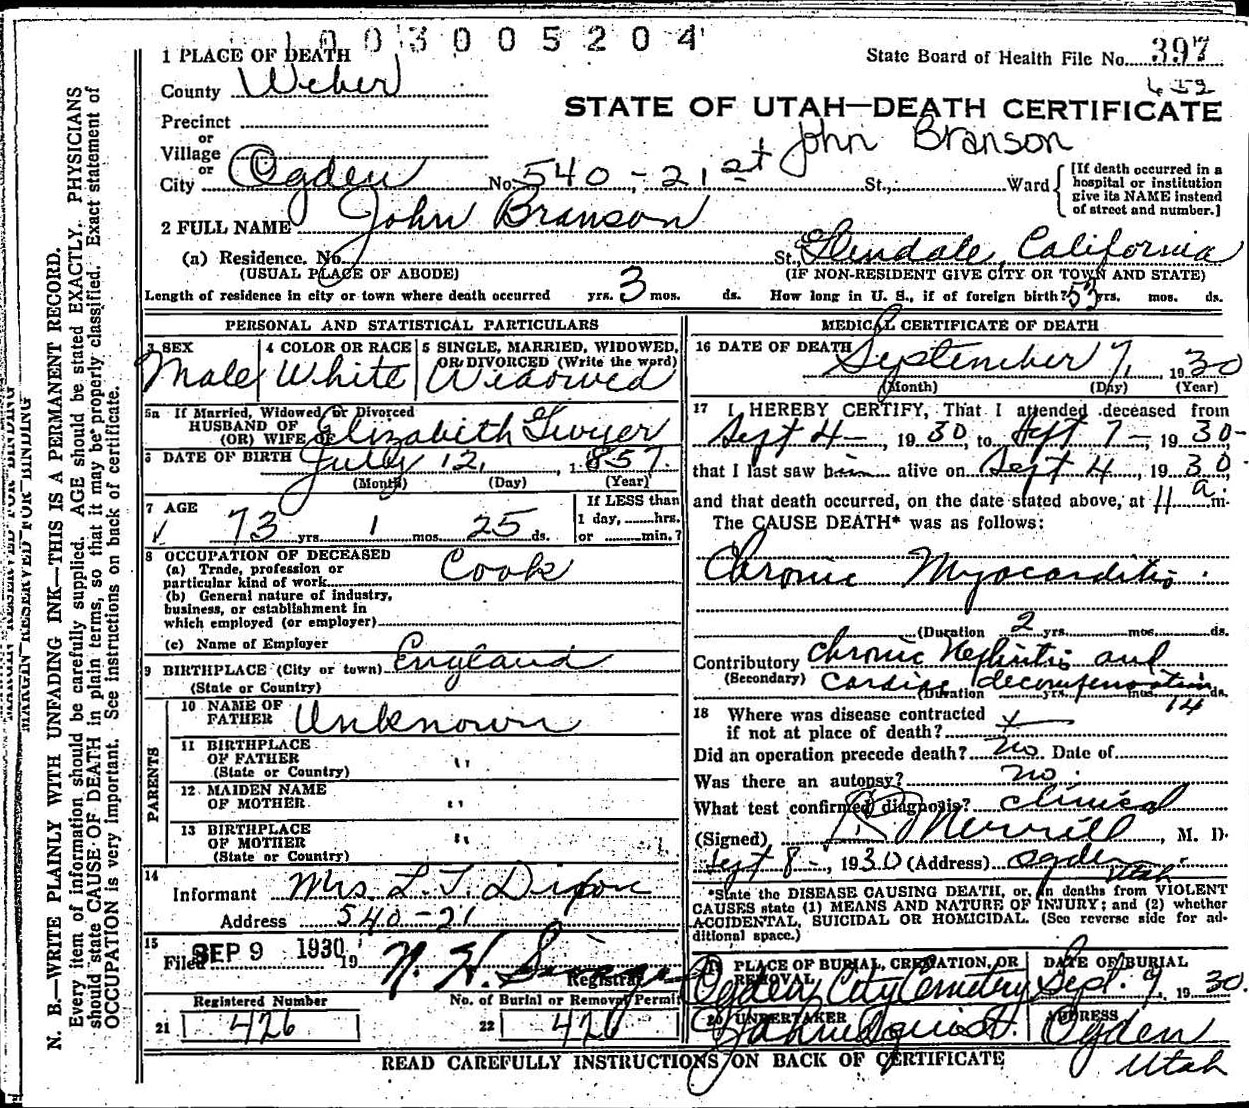 1003005204
1 PLACE OF DEATH
State Board of Health File No. 397
County Weber
452
STATE OF UTAH—DEATH CERTIFICATE
Precinct
or
Village
John Branson
or
City Ogden No. 540-21st St., Ward
[If death occurred in a hospital or institution give its NAME instead of street and number.]
2 FULL NAME John Branson
(a) Residence. No. St., Glendale, California
(USUAL PLACE OF ABODE) (IF NON-RESIDENT GIVE CITY OR TOWN AND STATE)
Length of residence in city or town where death occurred yrs. 3 mos. ds. How long in U. S., if of foreign birth? 53 yrs. mos. ds.
PERSONAL AND STATISTICAL PARTICULARS
3 SEX
Male
4 COLOR OR RACE
White
5 SINGLE, MARRIED, WIDOWED,
OR DIVORCED (Write the word)
Widowed
5a If Married, Widowed or Divorced
HUSBAND OF
(OR) WIFE OF Elizabeth Gwyer
6 DATE OF BIRTH July 12, 1857.
(Month) (Day) (Year)
7 AGE
73 yrs. 1 mos. 25 ds.
If LESS than
1 day, hrs.
or min.?
8 OCCUPATION OF DECEASED
(a) Trade, profession or
particular kind of work Cook
(b) General nature of industry,
business, or establishment in
which employed (or employer)
(c) Name of Employer
9 BIRTHPLACE (City or town) England
(State or Country)
PARENTS
10 NAME OF
FATHER Unknown
11 BIRTHPLACE
OF FATHER "
(State or Country)
12 MAIDEN NAME
OF MOTHER "
13 BIRTHPLACE
OF MOTHER "
(State or Country)
14
Informant Mrs. L. T. Dixon
Address 540-21
15
Filed SEP 9 1930 19
N. H.
Registrar
Registered Number
21 426
No. of Burial or Removal Permit
22 426
MEDICAL CERTIFICATE OF DEATH
16 DATE OF DEATH September 7, 1930
(Month) (Day) (Year)
17 I HEREBY CERTIFY, That I attended deceased from
Sept 4-, 1930, to Sept 7- 1930-
that I last saw him alive on Sept 4, 1930.
and that death occurred, on the date stated above, at 11 a. m.
The CAUSE DEATH* was as follows:
Chronic Myocarditis.
(Duration 2 yrs. mos. ds.
Contributory Chronic Nephritis and
(Secondary) Cardiac decompensation
(Duration yrs. mos. 14 ds.
18 Where was disease contracted
if not at place of death?
Did an operation precede death? no. Date of
Was there an autopsy? no.
What test confirmed diagnosis? Clinical
(Signed) Merrill, M. D.
Sept 8-, 1930 (Address) Ogden
Utah
*State the DISEASE CAUSING DEATH, or, in deaths from VIOLENT
CAUSES state (1) MEANS AND NATURE OF INJURY; and (2) whether
ACCIDENTAL, SUICIDAL OR HOMICIDAL. (See reverse side for ad-
ditional space.)
19 PLACE OF BURIAL, CREMATION, OR
REMOVAL
Ogden City Cemetery
DATE OF BURIAL
Sept. 9, 1930.
20 UNDERTAKER
ADDRESS
Ogden
Utah
READ CAREFULLY INSTRUCTIONS ON BACK OF CERTIFICATE
MARGIN RESERVED FOR BINDING
N. B.—WRITE PLAINLY WITH UNFADING INK—THIS IS A PERMANENT RECORD.
Every item of information should be carefully supplied. AGE should be stated EXACTLY. PHYSICIANS
should state CAUSE OF DEATH in plain terms, so that it may be properly classified. Exact statement of
OCCUPATION is very important. See instructions on back of certificate.